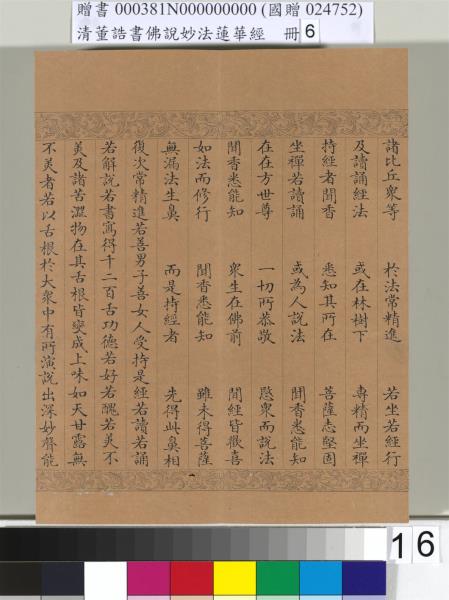 贈書 000381N000000000 (國贈 024752)
清董誥書佛說妙法蓮華經 冊 6
諸比丘眾等 於法常精進 若坐若經行
及讀誦經法 或在林樹下 專精而坐禪
持經者聞香 悉知其所在 菩薩志堅固
坐禪若讀誦 或為人說法 聞香悉能知
在在方世尊 一切所恭敬 愍眾而說法
聞香悉能知 眾生在佛前 聞經皆歡喜
如法而修行 聞香悉能知 雖未得菩薩
無漏法生鼻 而是持經者 先得此鼻相
復次常精進若善男子善女人受持是經若讀若誦
若解說若書寫得千二百舌功德若好若醜若美不
美及諸苦澀物在其舌根皆變成上味如天甘露無
不美者若以舌根於大眾中有所演說出深妙聲能
16